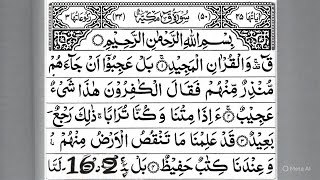 اٰیاتها ۴۵ (۵۰) سُوْرَةُ قٓ مَكِّيَّةٌ (۳۴) رکوعاتها ۳
بِسْمِ اللّٰهِ الرَّحْمٰنِ الرَّحِيْمِ
قٓ ۚ وَالْقُرْاٰنِ الْمَجِيْدِ ۱ بَلْ عَجِبُوْۤا اَنْ جَآءَهُمْ
مُّنْذِرٌ مِّنْهُمْ فَقَالَ الْكٰفِرُوْنَ هٰذَا شَیْءٌ
عَجِيْبٌ ۲ ءَاِذَا مِتْنَا وَكُنَّا تُرَابًا ۚ ذٰلِكَ رَجْعٌۢ
بَعِيْدٌ ۳ قَدْ عَلِمْنَا مَا تَنْقُصُ الْاَرْضُ مِنْهُمْ ۚ
وَعِنْدَنَا كِتٰبٌ حَفِيْظٌ ۴ بَلْ
16-2
Meta AI